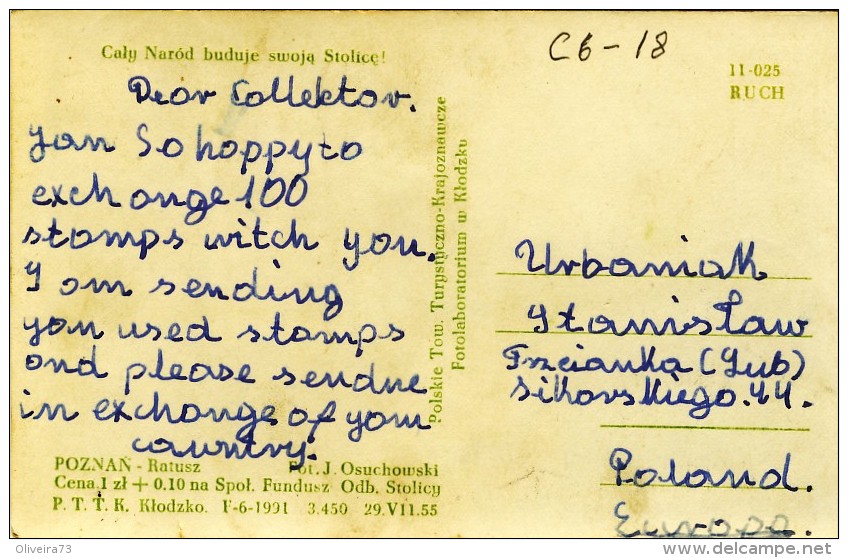 Cały Naród buduje swoją Stolicę!
C6-18
11-025
RUCH
Dear Collektor.
Jan So happy to
exchange 100
stamps witch you.
I am sending
you used stamps
and please sendne
in exchange of your
cauntry.
Polskie Tow. Turystyczno-Krajoznawcze
Fotolaboratorium w Kłodzku
Urbaniak
Stanisław
Trzcianka (Lub)
Sikorskiego. 44.
Poland.
Europa.
POZNAŃ - Ratusz Fot. J. Osuchowski
Cena 1 zł + 0.10 na Społ. Fundusz Odb. Stolicy
P. T. T. K. Kłodzko. F-6-1991 3.450 29.VII.55
©Oliveira73
www.delcampe.net